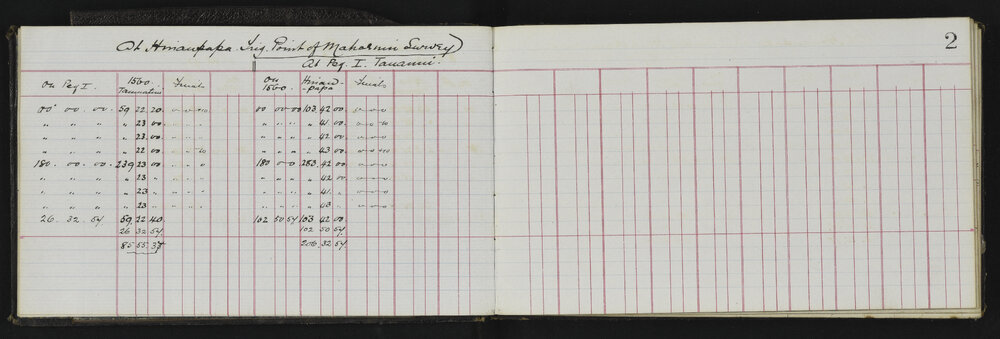 2
At Hinaupapa. Trig. Point of Maharnui Survey)
At Peg. I. Tananui.
On Peg I. 1560. Finals On 1560. Hinau-papa Finals
00° 00. 00. 59 22 20. 00 00 00 103. 42 00.
" " " " 23 00. " " " " 41. 00.
" " " " 23. 00. " " " " 42 00.
" " " " 22 00. " " " " 43 00.
180. 00. 00. 239 23 00. 180 00 283. 42 00.
" " " " 23 " " " " " 42 00.
" " " " 23 " " " " " 41. "
" " " " 23 " " " " " 43 "
26. 32. 54. 59. 22 40. 102 50 54 103 42 00.
26 32 54. 102 50 54.
85. 55. 34 206. 32 54.